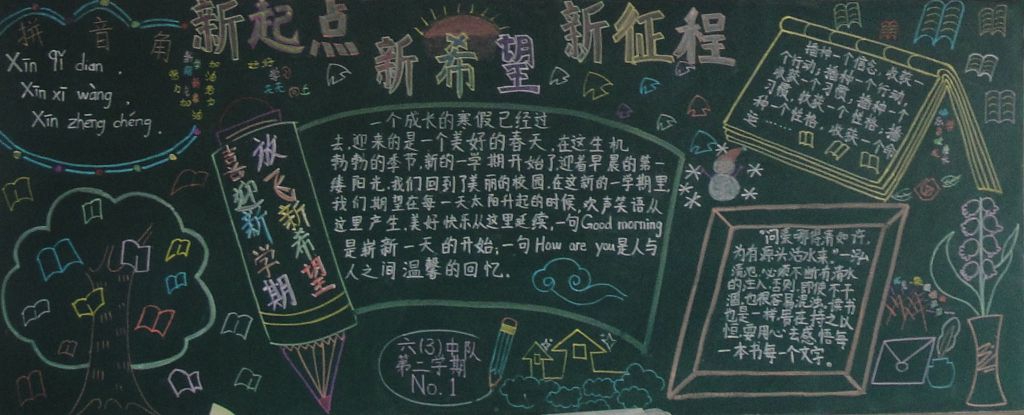 新起点
新希望
新征程
拼音角
Xīn qǐ diǎn.
Xīn xī wàng.
Xīn zhēng chéng.
喜迎新学期
放飞新希望
一个成长的寒假已经过
去,迎来的是一个美好的春天,在这生机
勃勃的季节,新的一学期开始了,迎着早晨的第一
缕阳光,我们回到了美丽的校园,在这新的一学期里
我们期望在每一天太阳升起的时候,欢声笑语从
这里产生,美好快乐从这里延续,一句Good morning
是崭新一天的开始,一句How are you是人与
人之间温馨的回忆。
六(3)中队
第二学期
No.1
播种一个信念,收获一
个行动,播种一个行动,
收获一个习惯,播种一个
习惯,收获一个性格,播
种一个性格,收获一个命
运……
"问渠哪得清如许,
为有源头活水来。"一沟
清池,必须不断有活水
的注入,否则,即使不干
涸,也很容易混浊。读书
也是一样,贵在持之以
恒,要用心去感悟每
一本书每一个文字。